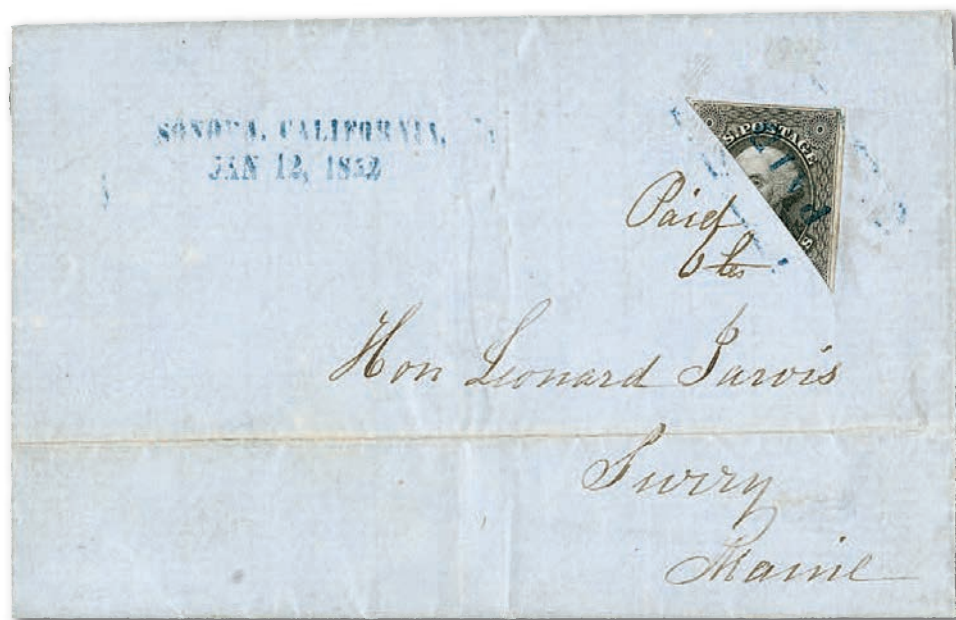 SONOMA, CALIFORNIA,
JAN 12, 1852
S. POSTAGE
S
Paid
6 cts
Hon Leonard Jarvis
Surry
Maine